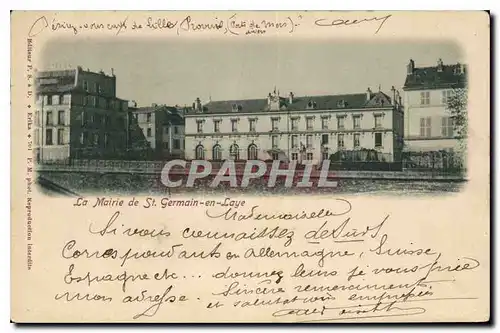 Désirez-vous cart de Lille (Provins, (Cat. de Mers).
CPRPHIL
Editeur F. S. à D. ★ Erika ★ 701 P. M. Reproduction interdite
La Mairie de St. Germain-en-Laye
Mademoiselle
Si vous connaissez des
Correspondants en Allemagne, Suisse,
Espagne etc... donnez leurs je vous prie
mon adresse. Sincère remerciements
et salutation empressées